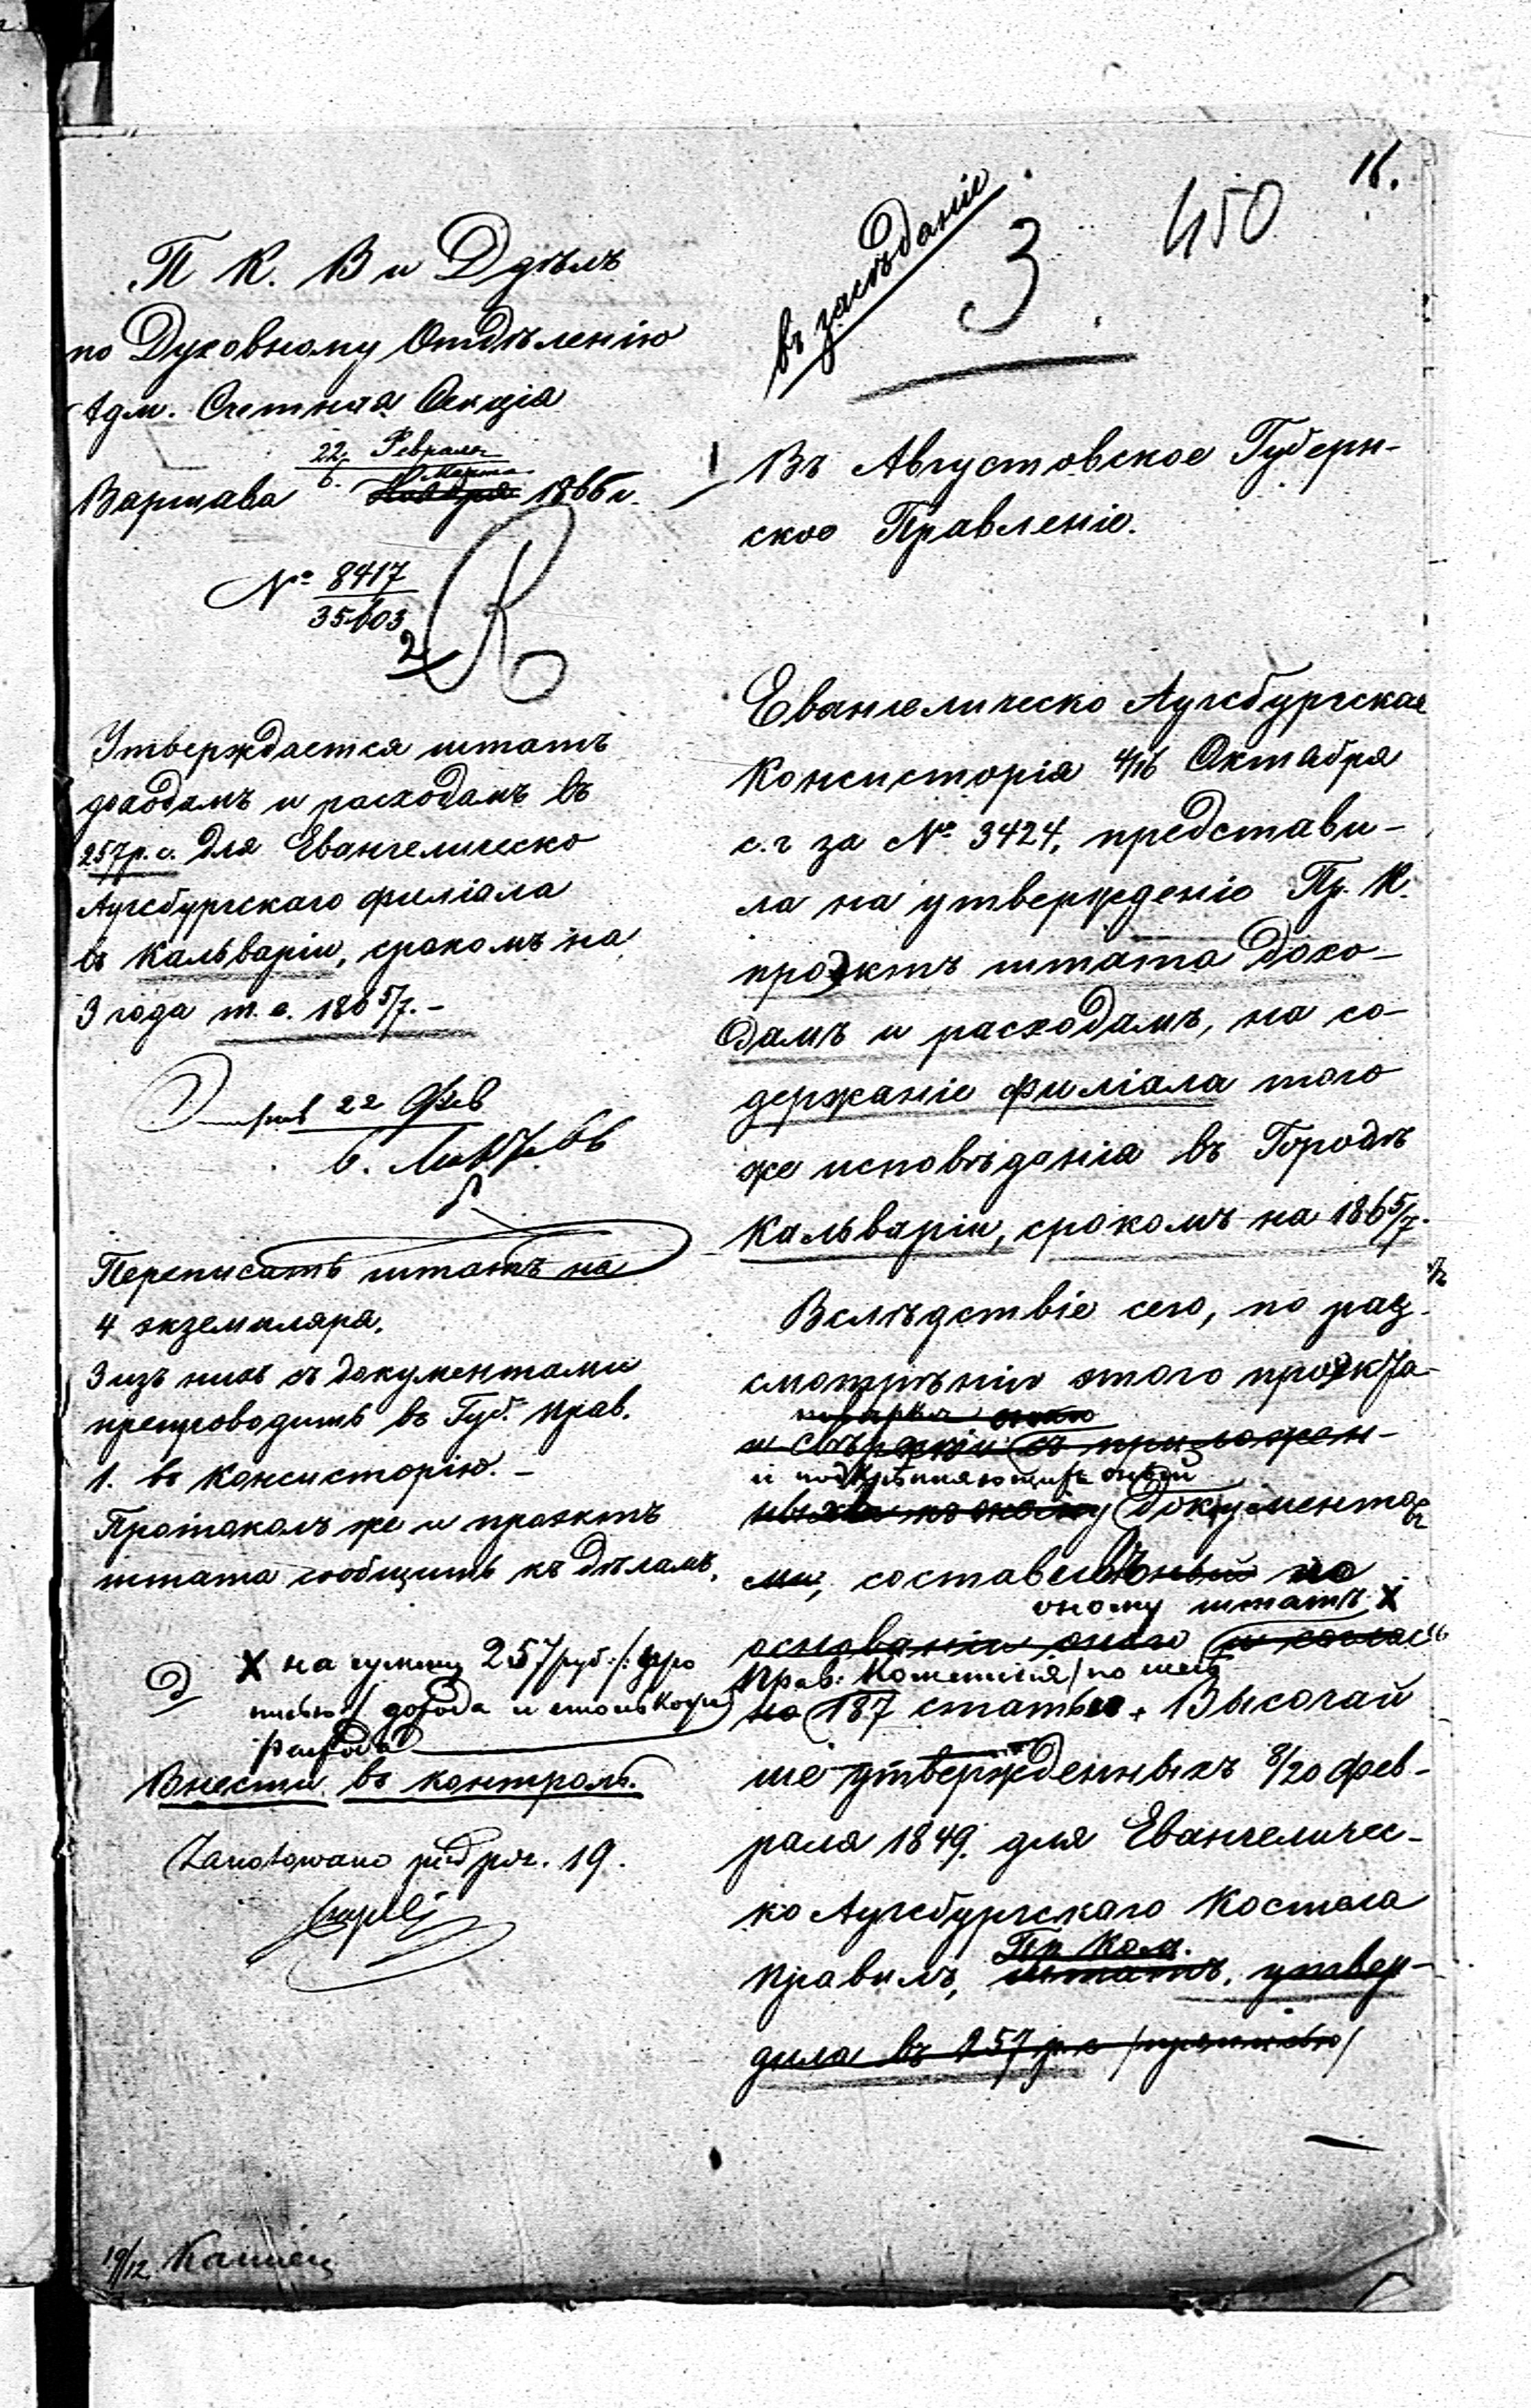 16.
450
въ засѣданіе
3
П К. В и Д дѣлъ
по Духовному Отдѣленію
Адм. Счетная Секція
22 Февраля
6. Марта
Варшава Ноября 1866 г.
№ 8417
35603
2
Утверждается штатъ
доходамъ и расходамъ въ
257 р. с. для Евангелическо
Аугсбургскаго филіала
въ Кальваріи, срокомъ на
3 года т. е. 186 5/7. –
22 Фев
Переписать штатъ на
4 экземпляра.
3 изъ нихъ съ документами
препроводить въ Губ. Прав.
1. въ Консисторію. –
Протоколъ же и проэктъ
штата сообщить къ дѣламъ.
X на сумму 257 руб. /: про
писью / дохода и столько же
расхода
Внести въ контроль.
Zanotowano pod poz. 19.
19/12
Въ Августовское Губерн-
ское Правленіе.
Евангелическо Аугсбургская
Консисторія 4/16 Октября
с. г за № 3424, представи-
ла на утвержденіе Пр. К.
проэктъ штата дохо-
дамъ и расходамъ, на со-
держаніе филіала того
же исповѣданія въ Городѣ
Кальваріи, срокомъ на 186 5/7.
Вслѣдствіе сего, по раз-
смотрѣніи этого проэкта
и съ приложен-
и подкрѣпляющихъ оный
документа
ми, составленный по
оному штатъ X
основанію онаго и соглас
Прав: Коммисія / по силѣ
но 187 статьи, Высочай
ше утвержденныхъ 8/20 фев-
раля 1849. для Евангеличес-
ко Аугсбургскаго Костела
правилъ, штатъ, утвер-
Пр. Ком.
дила въ 257 р. с. /прописью/